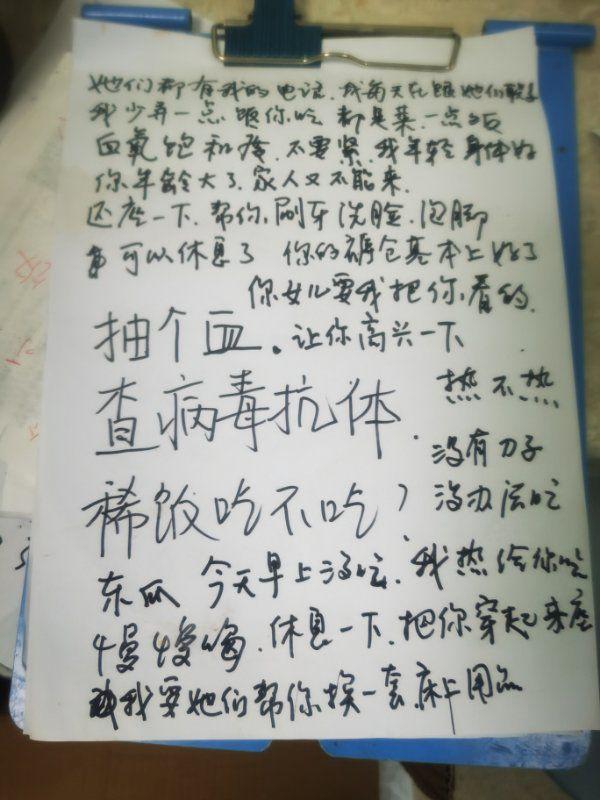 她们都有我的电话.我每天在跟她们联系
我少弄一点跟你吃 都是菜.一点饭
血氧饱和度.不要紧.我年轻身体好
你年龄大了.家人又不能来.
还座一下.帮你.刷牙洗脸.泡脚
可以休息了 你的褥仓基本上好了
你女儿要我把你看的.
抽个血。让你高兴一下
查病毒抗体 热不热
没有刀子
稀饭吃不吃? 没办法吃
东瓜 今天早上没吃.我热给你吃
慢慢喝.休息一下.把你穿起来座
我要她们帮你换一套.床上用品